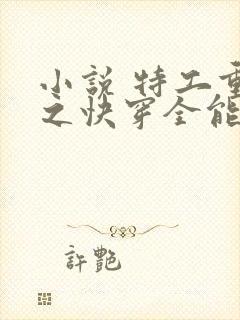 小説 特工重
之快穿全能
許艷